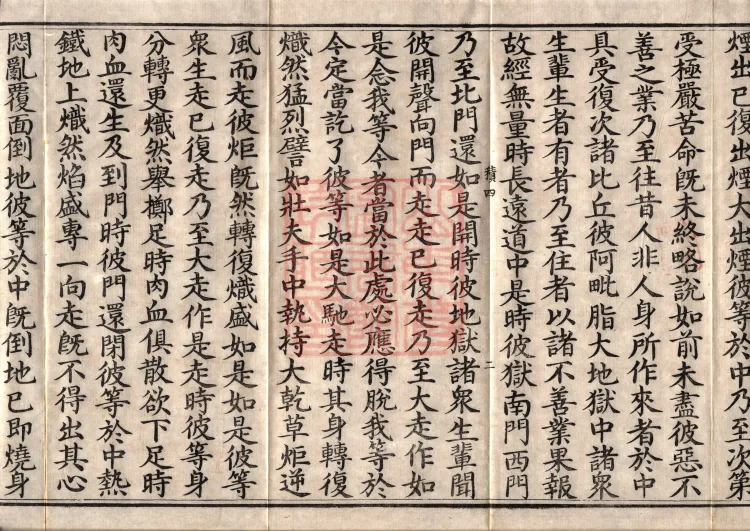 煙出已復出煙大出煙彼等於中乃至次第
受極嚴苦命既未終略說如前未盡彼惡不
善之業乃至往昔人非人身所作來者於中
具受復次諸比丘彼阿毗脂大地獄中諸衆
生輩生者有者乃至住者以諸不善業果報
故經無量時長遠道中是時彼獄南門西門
積四
二
乃至北門還如是開時彼地獄諸衆生輩聞
彼開聲向門而走走已復走乃至大走作如
是念我等今者當於此處必應得脫我等於
今定當訖了彼等如是大馳走時其身轉復
熾然猛烈譬如壯夫手中執持大乾草炬逆
風而走彼炬既然轉復熾盛如是如是彼等
衆生走已復走乃至大走作是走時彼等身
分轉更熾然舉擲足時肉血俱散欲下足時
肉血還生及到門時彼門還閉彼等於中熱
鐵地上熾然焰盛專一向走既不得出其心
悶亂覆面倒地彼等於中既倒地已即燒身